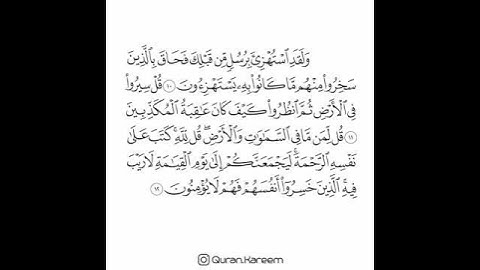 وَلَقَدِ ٱسْتُهْزِئَ بِرُسُلٍ مِّن قَبْلِكَ فَحَاقَ بِٱلَّذِينَ
سَخِرُوا۟ مِنْهُم مَّا كَانُوا۟ بِهِۦ يَسْتَهْزِءُونَ ١٠ قُلْ سِيرُوا۟
فِى ٱلْأَرْضِ ثُمَّ ٱنظُرُوا۟ كَيْفَ كَانَ عَـٰقِبَةُ ٱلْمُكَذِّبِينَ
١١ قُل لِّمَن مَّا فِى ٱلسَّمَـٰوَٰتِ وَٱلْأَرْضِ ۖ قُل لِّلَّهِ ۚ كَتَبَ عَلَىٰ
نَفْسِهِ ٱلرَّحْمَةَ ۚ لَيَجْمَعَنَّكُمْ إِلَىٰ يَوْمِ ٱلْقِيَـٰمَةِ لَا رَيْبَ
فِيهِ ۚ ٱلَّذِينَ خَسِرُوٓا۟ أَنفُسَهُمْ فَهُمْ لَا يُؤْمِنُونَ ١٢
Quran.Kareem